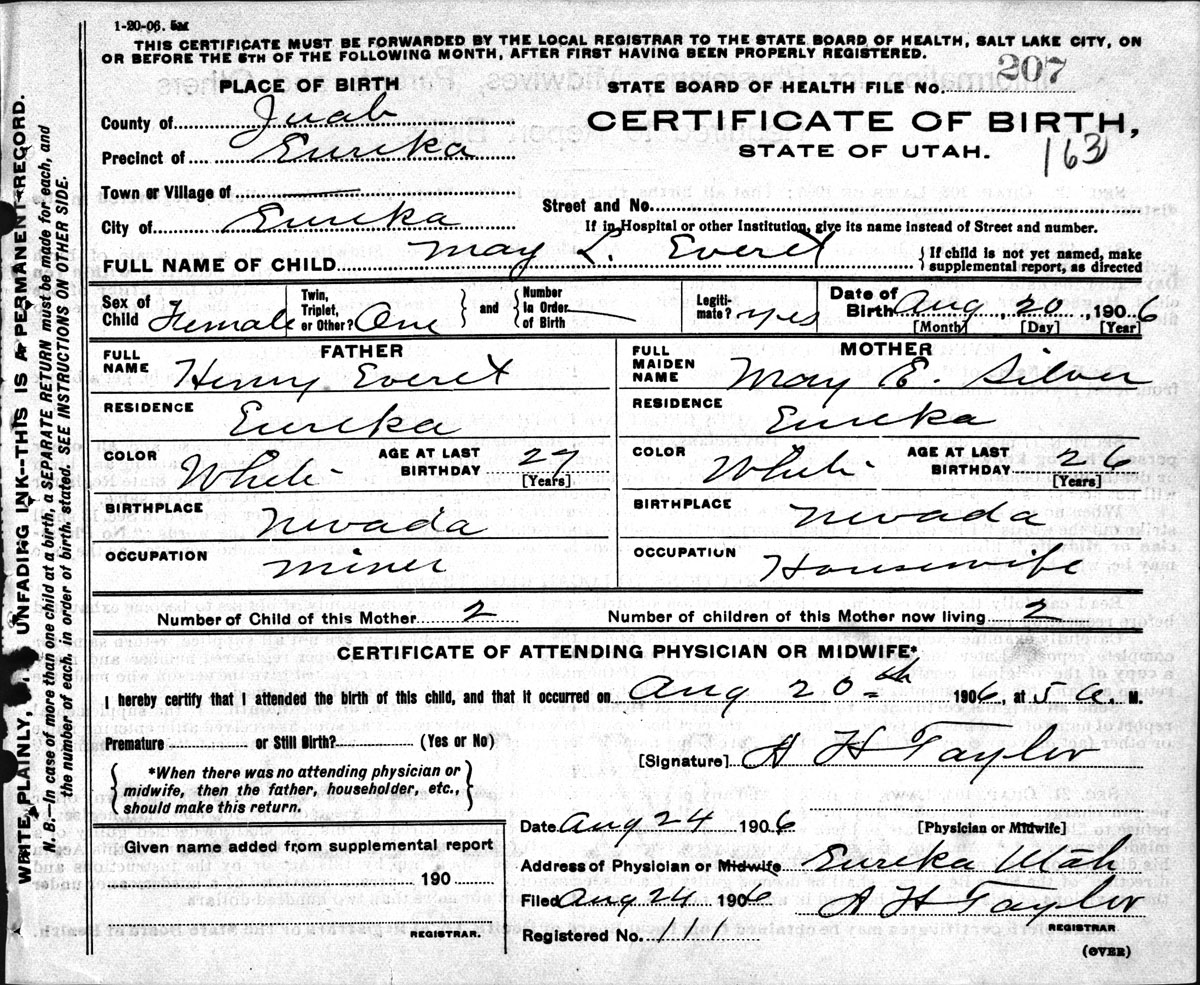 1-20-06. 5M
THIS CERTIFICATE MUST BE FORWARDED BY THE LOCAL REGISTRAR TO THE STATE BOARD OF HEALTH, SALT LAKE CITY, ON
OR BEFORE THE 5TH OF THE FOLLOWING MONTH, AFTER FIRST HAVING BEEN PROPERLY REGISTERED.
WRITE PLAINLY, UNFADING INK--THIS IS A PERMANENT RECORD.
N. B.--In case of more than one child at a birth, a SEPARATE RETURN must be made for each, and
the number of each, in order of birth, stated. SEE INSTRUCTIONS ON OTHER SIDE.
PLACE OF BIRTH
STATE BOARD OF HEALTH FILE No. 207
County of Juab
CERTIFICATE OF BIRTH,
STATE OF UTAH.
163
Precinct of Eureka
Town or Village of
Street and No.
City of Eureka
If in Hospital or other Institution, give its name instead of Street and number.
FULL NAME OF CHILD May L. Everet
{ If child is not yet named, make
supplemental report, as directed
Sex of Child Female
Twin, Triplet, or Other? One
and
Number In Order of Birth
Legiti-mate? yes
Date of Birth Aug, 20, 1906
[Month] [Day] [Year]
FATHER
MOTHER
FULL NAME Henry Everet
FULL MAIDEN NAME May E. Silver
RESIDENCE Eureka
RESIDENCE Eureka
COLOR White
AGE AT LAST BIRTHDAY 27 [Years]
COLOR White
AGE AT LAST BIRTHDAY 26 [Years]
BIRTHPLACE Nevada
BIRTHPLACE Nevada
OCCUPATION Miner
OCCUPATION Housewife
Number of Child of this Mother 2
Number of children of this Mother now living 2
CERTIFICATE OF ATTENDING PHYSICIAN OR MIDWIFE*
I hereby certify that I attended the birth of this child, and that it occurred on Aug 20th 1906, at 5 a. M.
Premature or Still Birth? (Yes or No)
[Signature] A H Taylor
*When there was no attending physician or
midwife, then the father, householder, etc.,
should make this return.
Date Aug 24 1906
[Physician or Midwife]
Given name added from supplemental report
190
REGISTRAR.
Address of Physician or Midwife Eureka Utah
Filed Aug 24 1906 A H Taylor
REGISTRAR
Registered No. 111
(OVER)